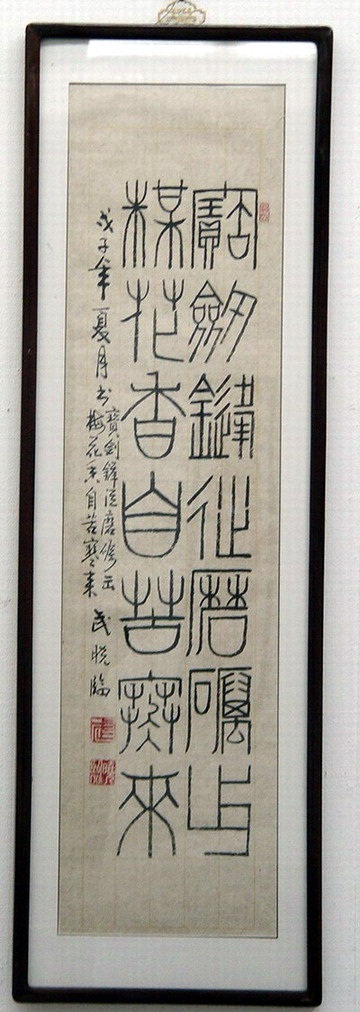 寶劍鋒從磨礪出
楳花香自苦寒來
戊子年夏月书
寶劍鋒從磨礪出
梅花香自苦寒来
武 臨